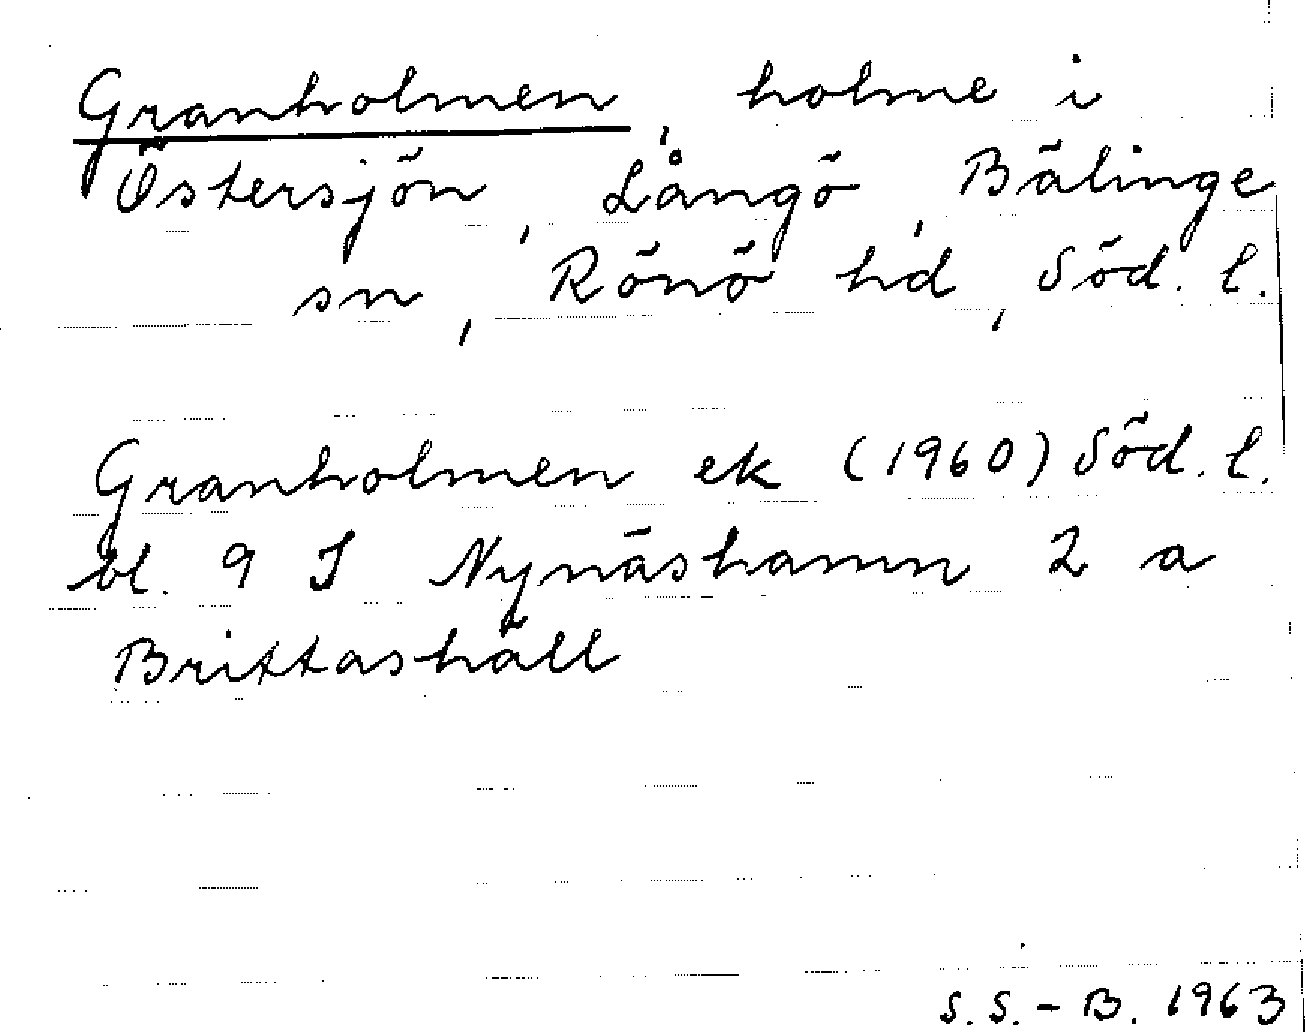 Granholmen, holme i
Östersjön, Långö, Bälinge
sn, Rönö hd, Söd. l.
Granholmen ek (1960) Söd. l.
bl. 9 I Nynäshamn 2 a
Brittashäll
S.S.-B. 1963